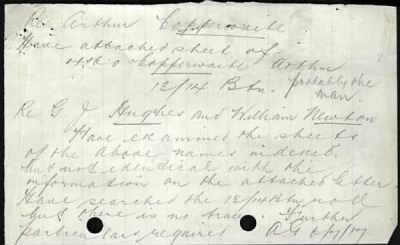 Re Arthur Copperwaite
Have attached sheet of
Copperwaite Arthur
13/14 Btn. probably the
man.
Re G. J. Hughes and William Newton
Have examined the sheets
of the above names indexed
but not identical with the
information on the attached letter
Have searched the 13/14 Btn roll
but there is no trace. Further
particulars required A G